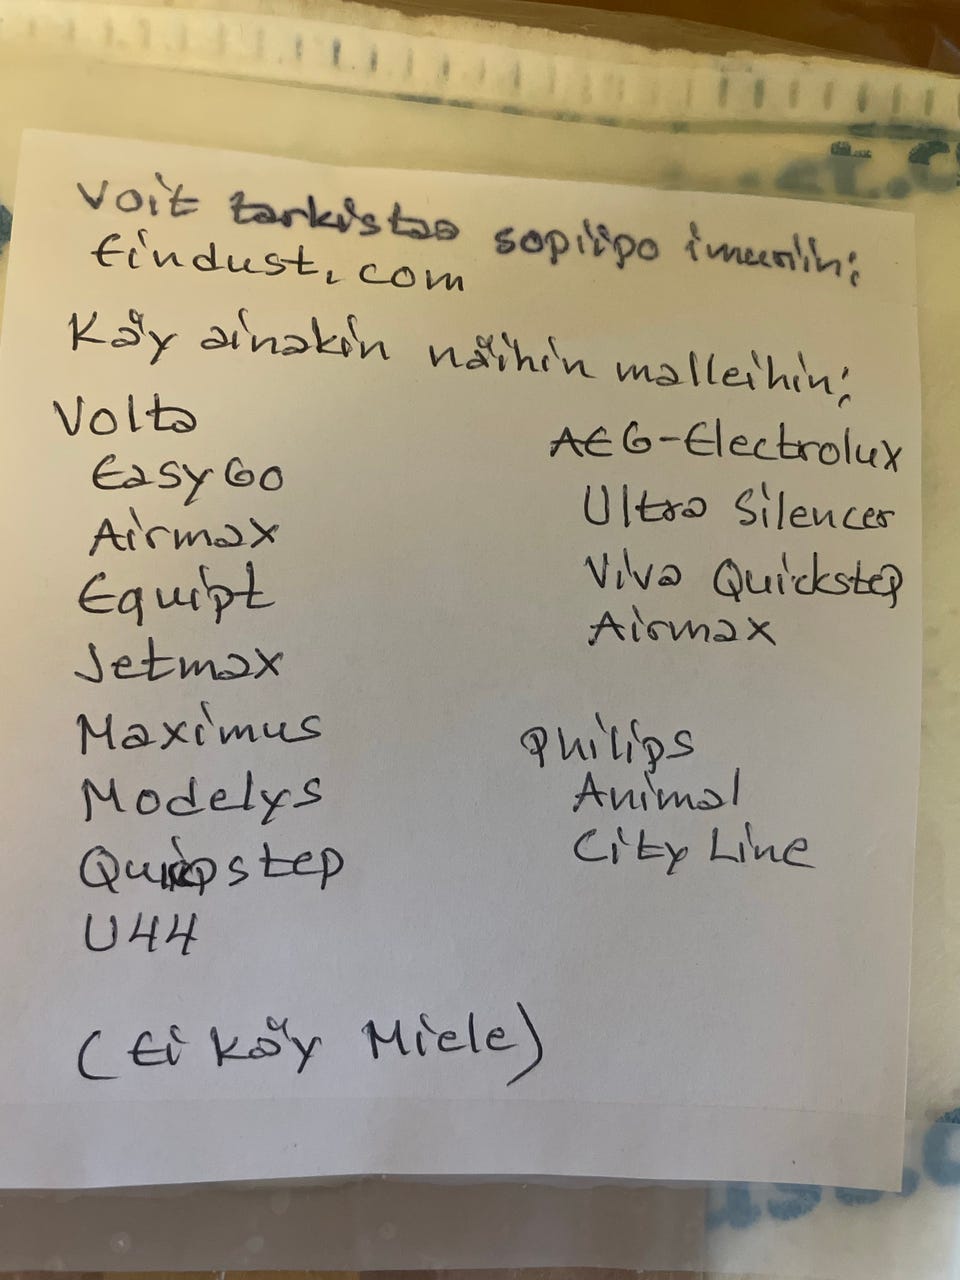 Voit tarkistaa sopiipo imuriin:
findust.com
Käy ainakin näihin malleihin:
Volta
EasyGo
Airmax
Equipt
Jetmax
Maximus
Modelys
Quicpstep
U44
AEG-Electrolux
Ultra Silencer
Viva Quickstep
Airmax
Philips
Animal
City Line
(Ei käy Miele)